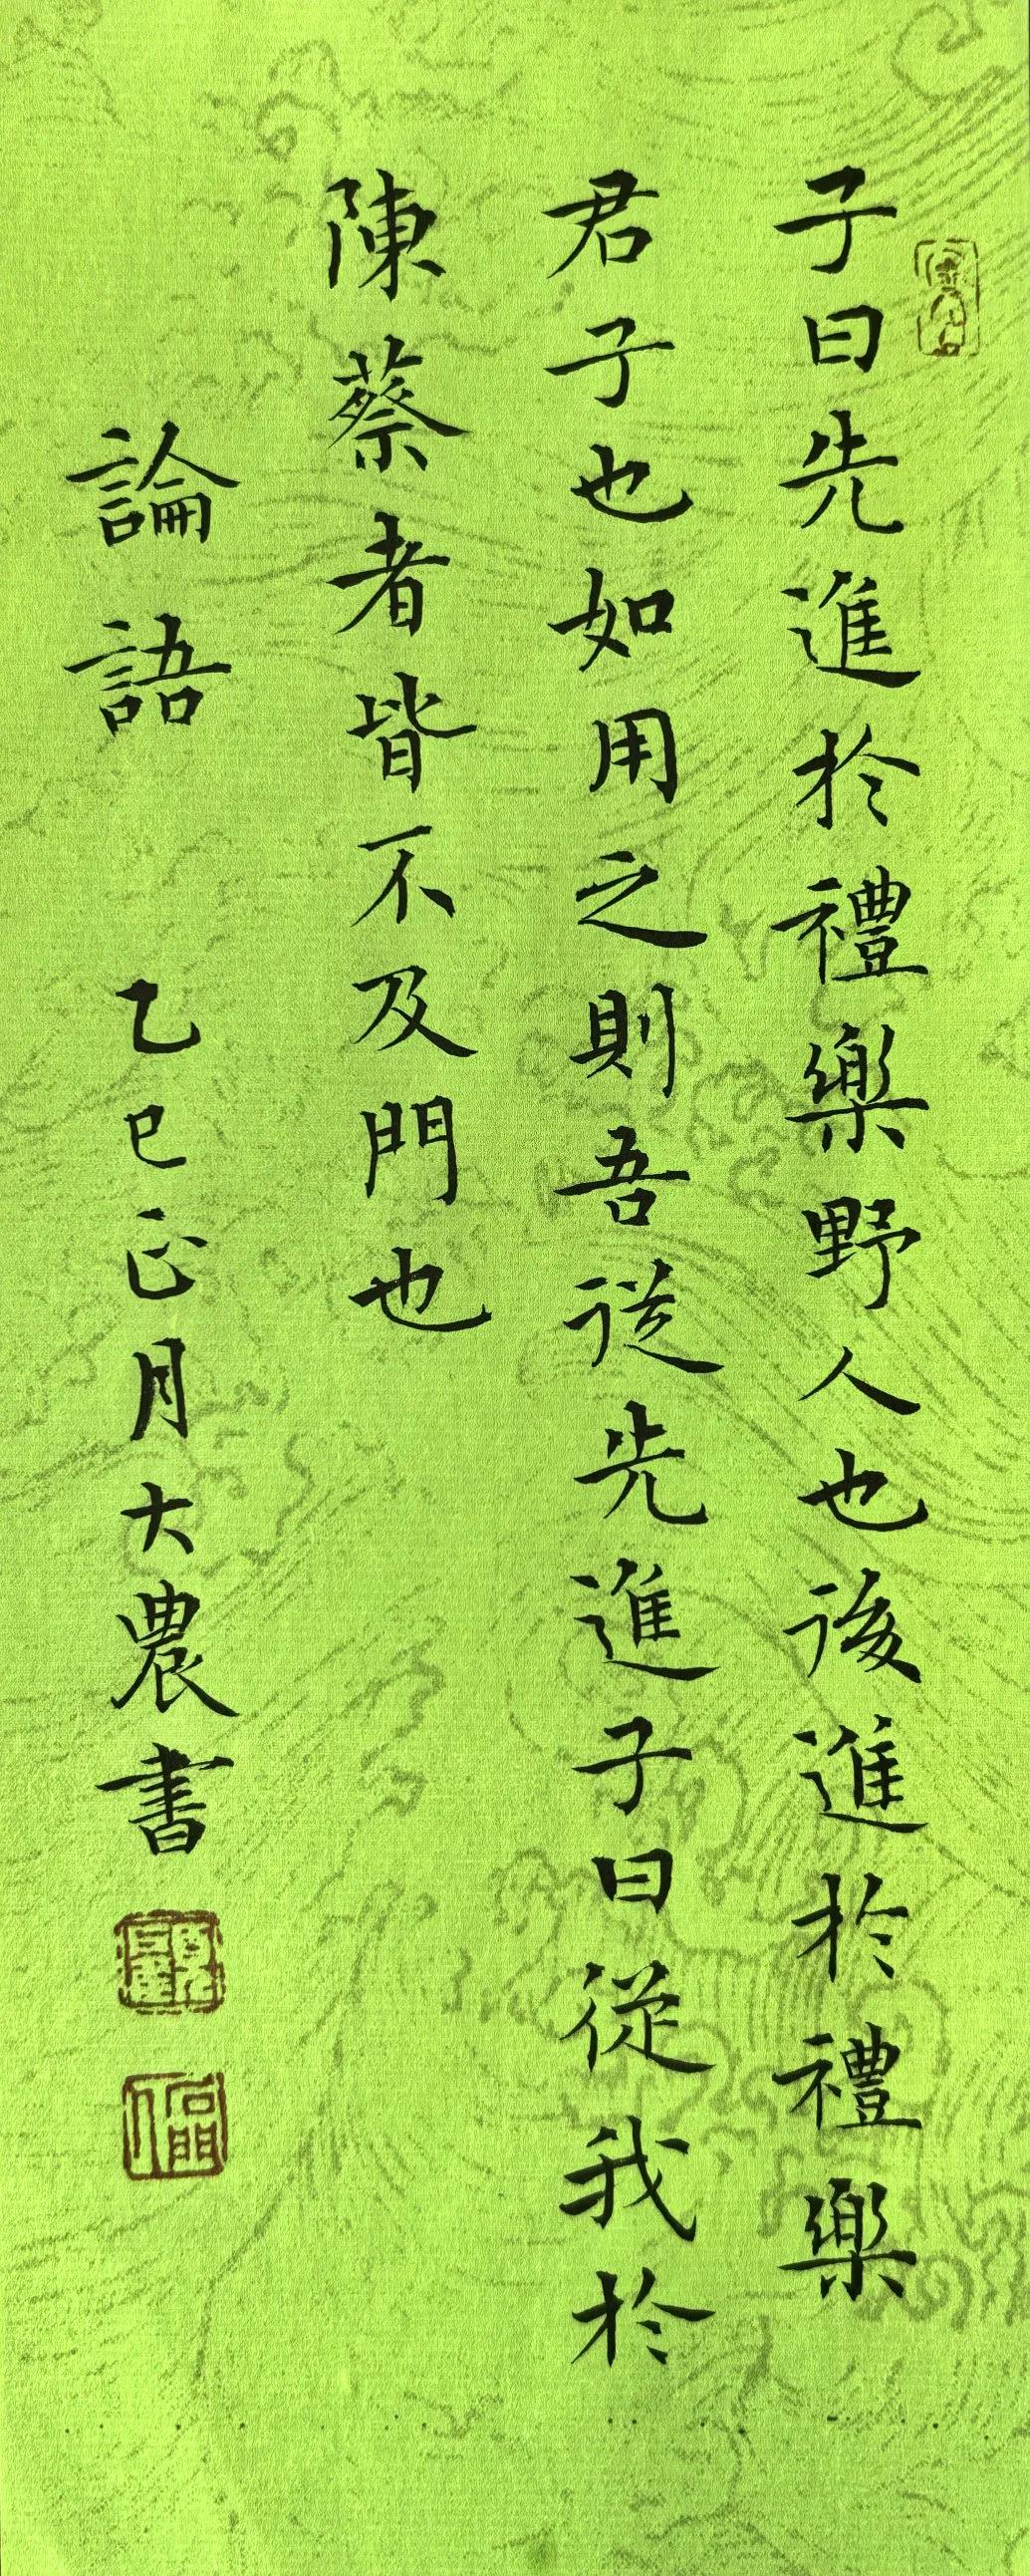 子曰先進於禮樂野人也後進於禮樂
君子也如用之則吾從先進子曰從我於
陳蔡者皆不及門也
論語 乙巳正月大農書